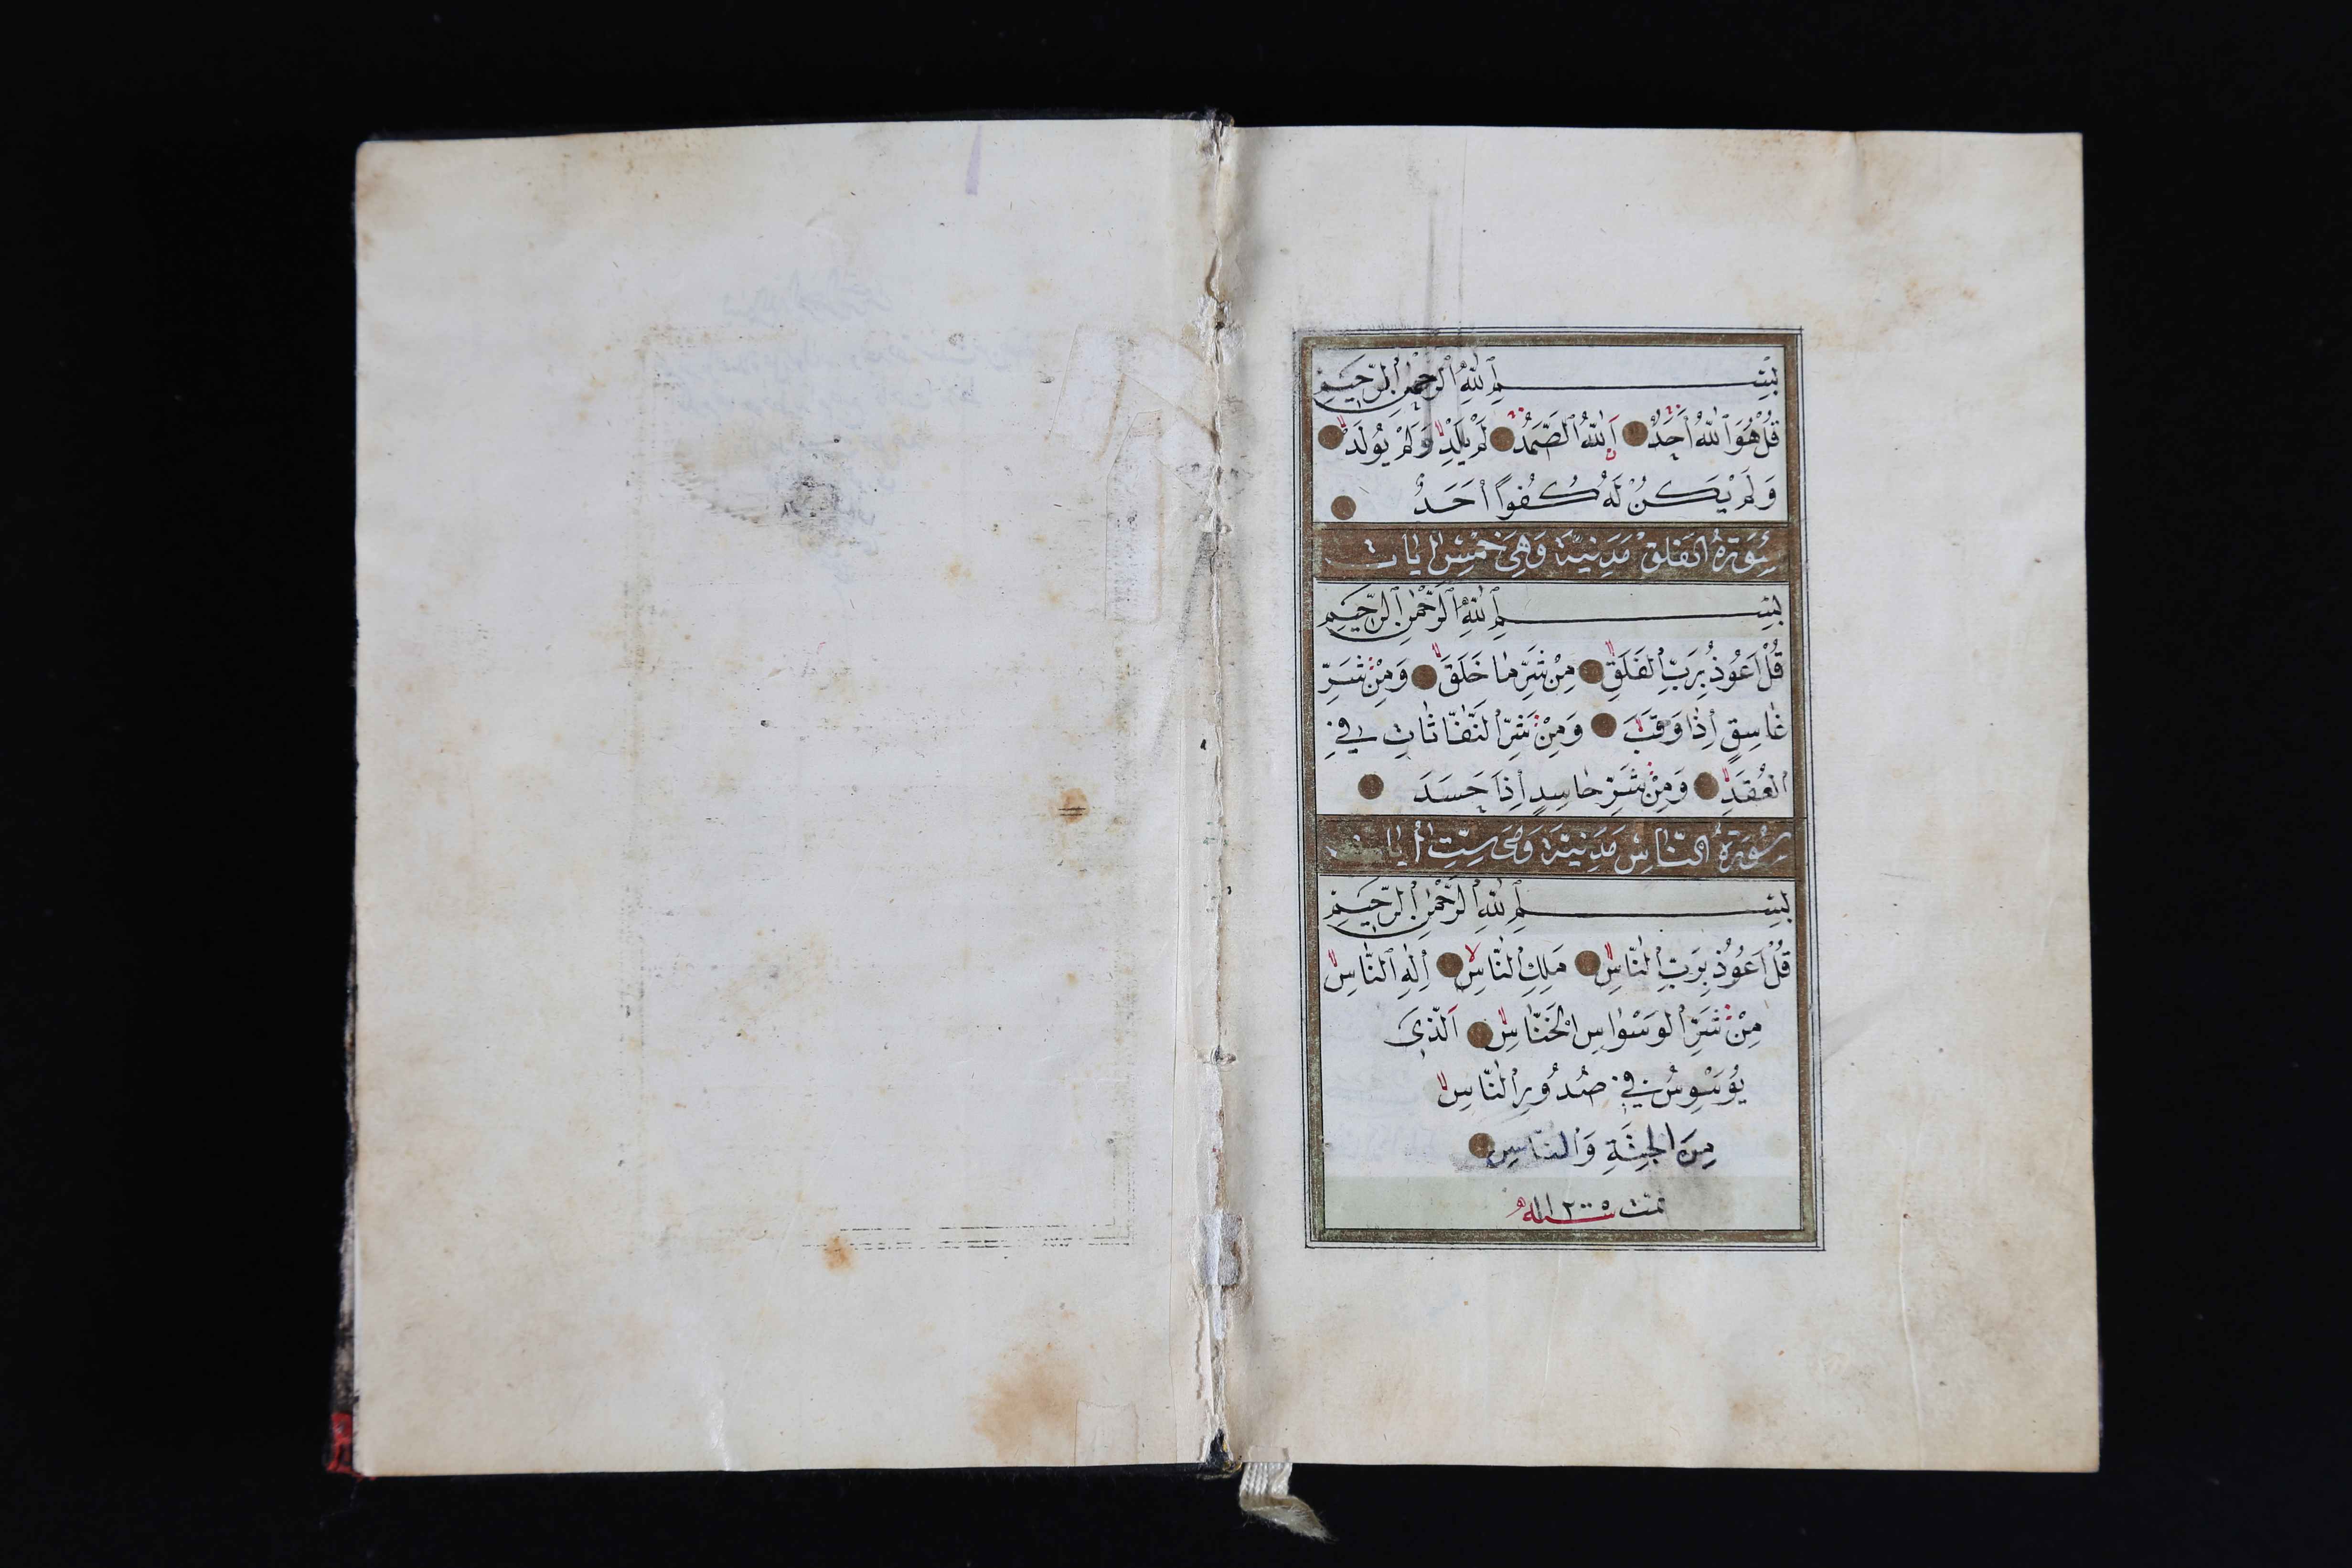 بِسْمِ ٱللّٰهِ ٱلرَّحْمٰنِ ٱلرَّحِيمِ
قُلْ هُوَ ٱللّٰهُ أَحَدٌ اَللّٰهُ ٱلصَّمَدُ لَمْ يَلِدْ وَلَمْ يُولَدْ
وَلَمْ يَكُنْ لَهُ كُفُوًا أَحَدٌ
سُورَةُ الفَلَقْ مَدَنِيَّة وَهِيَ خَمْسُ اٰيَات
بِسْمِ ٱللّٰهِ ٱلرَّحْمٰنِ ٱلرَّحِيمِ
قُلْ اَعُوذُ بِرَبِّ الفَلَقِ مِنْ شَرِّ مٰا خَلَقَ وَمِنْ شَرِّ
غٰاسِقٍ اِذٰا وَقَبَ وَمِنْ شَرِّ النَّفّٰاثٰاتِ فِي
العُقَدِ وَمِنْ شَرِّ حٰاسِدٍ اِذَا حَسَدَ
سُورَةُ النَّاسِ مَدَنِيَّة وَهِيَ سِتُّ اٰيا
بِسْمِ اللّٰهِ الرَّحْمٰنِ الرَّحِيمِ
قُلْ اَعُوذُ بِرَبِّ النّٰاسِ مَلِكِ النّٰاسِ اِلٰهِ النّٰاسِ
مِنْ شَرِّ الوَسْوٰاسِ الْخَنّٰاسِ اَلَّذِي
يُوَسْوِسُ فِي صُدُورِ النّٰاسِ
مِنَ الجِنَّةِ وَالنّاسِ
تمت سنة